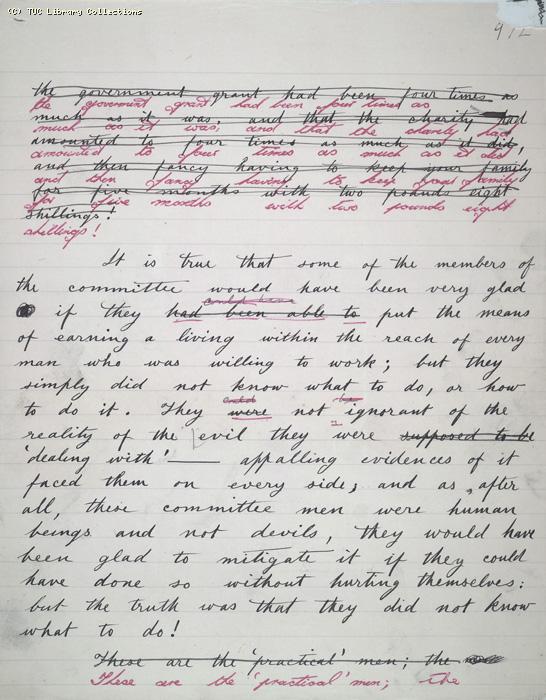 (C) TUC Library Collections
912
the government grant had been four times as
the government grant had been four times as
much as it was, and that the charity had
much as it was, and that the charity had
amounted to four times as much as it did,
amounted to four times as much as it did
and then fancy having to keep your family
and then fancy having to keep your family
for five months with two pounds eight
for five months with two pounds eight
shillings!
shillings!
It is true that some of the members of
the committee would have been very glad
could have
if they had been able to put the means
of earning a living within the reach of every
man who was willing to work; but they
simply did not know what to do, or how
to do it. They were not ignorant of the
reality of the evil they were supposed to be
'dealing with' — appalling evidences of it
faced them on every side, and as, after
all, these committee men were human
beings and not devils, they would have
been glad to mitigate it if they could
have done so without hurting themselves:
but the truth was that they did not know
what to do!
These are the 'practical' men; the
These are the 'practical' men; the